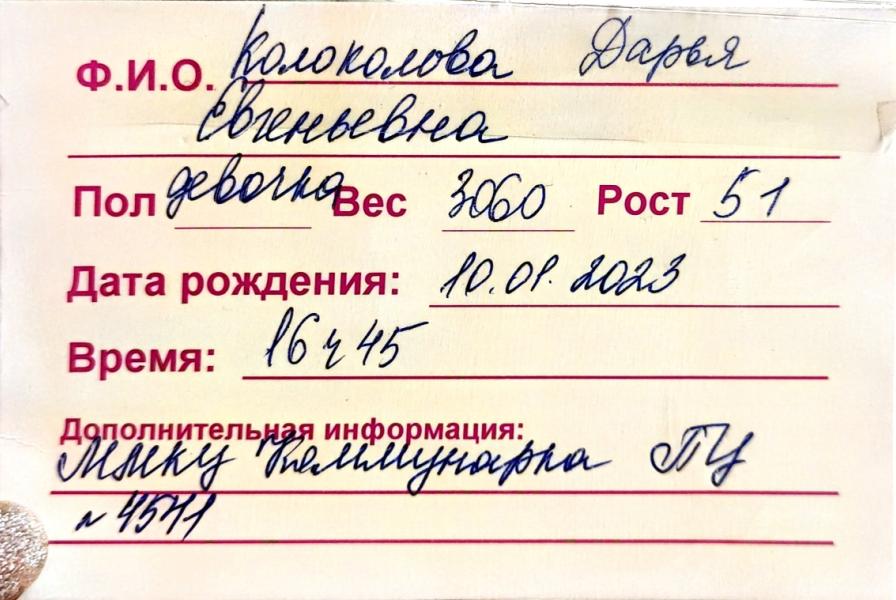 Ф.И.О. Колоколова Дарья
Евгеньевна
Пол девочка Вес 3060 Рост 51
Дата рождения: 10.01.2023
Время: 16 ч 45
Дополнительная информация:
ММКЦ Коммунарка ПЦ
№ 4541